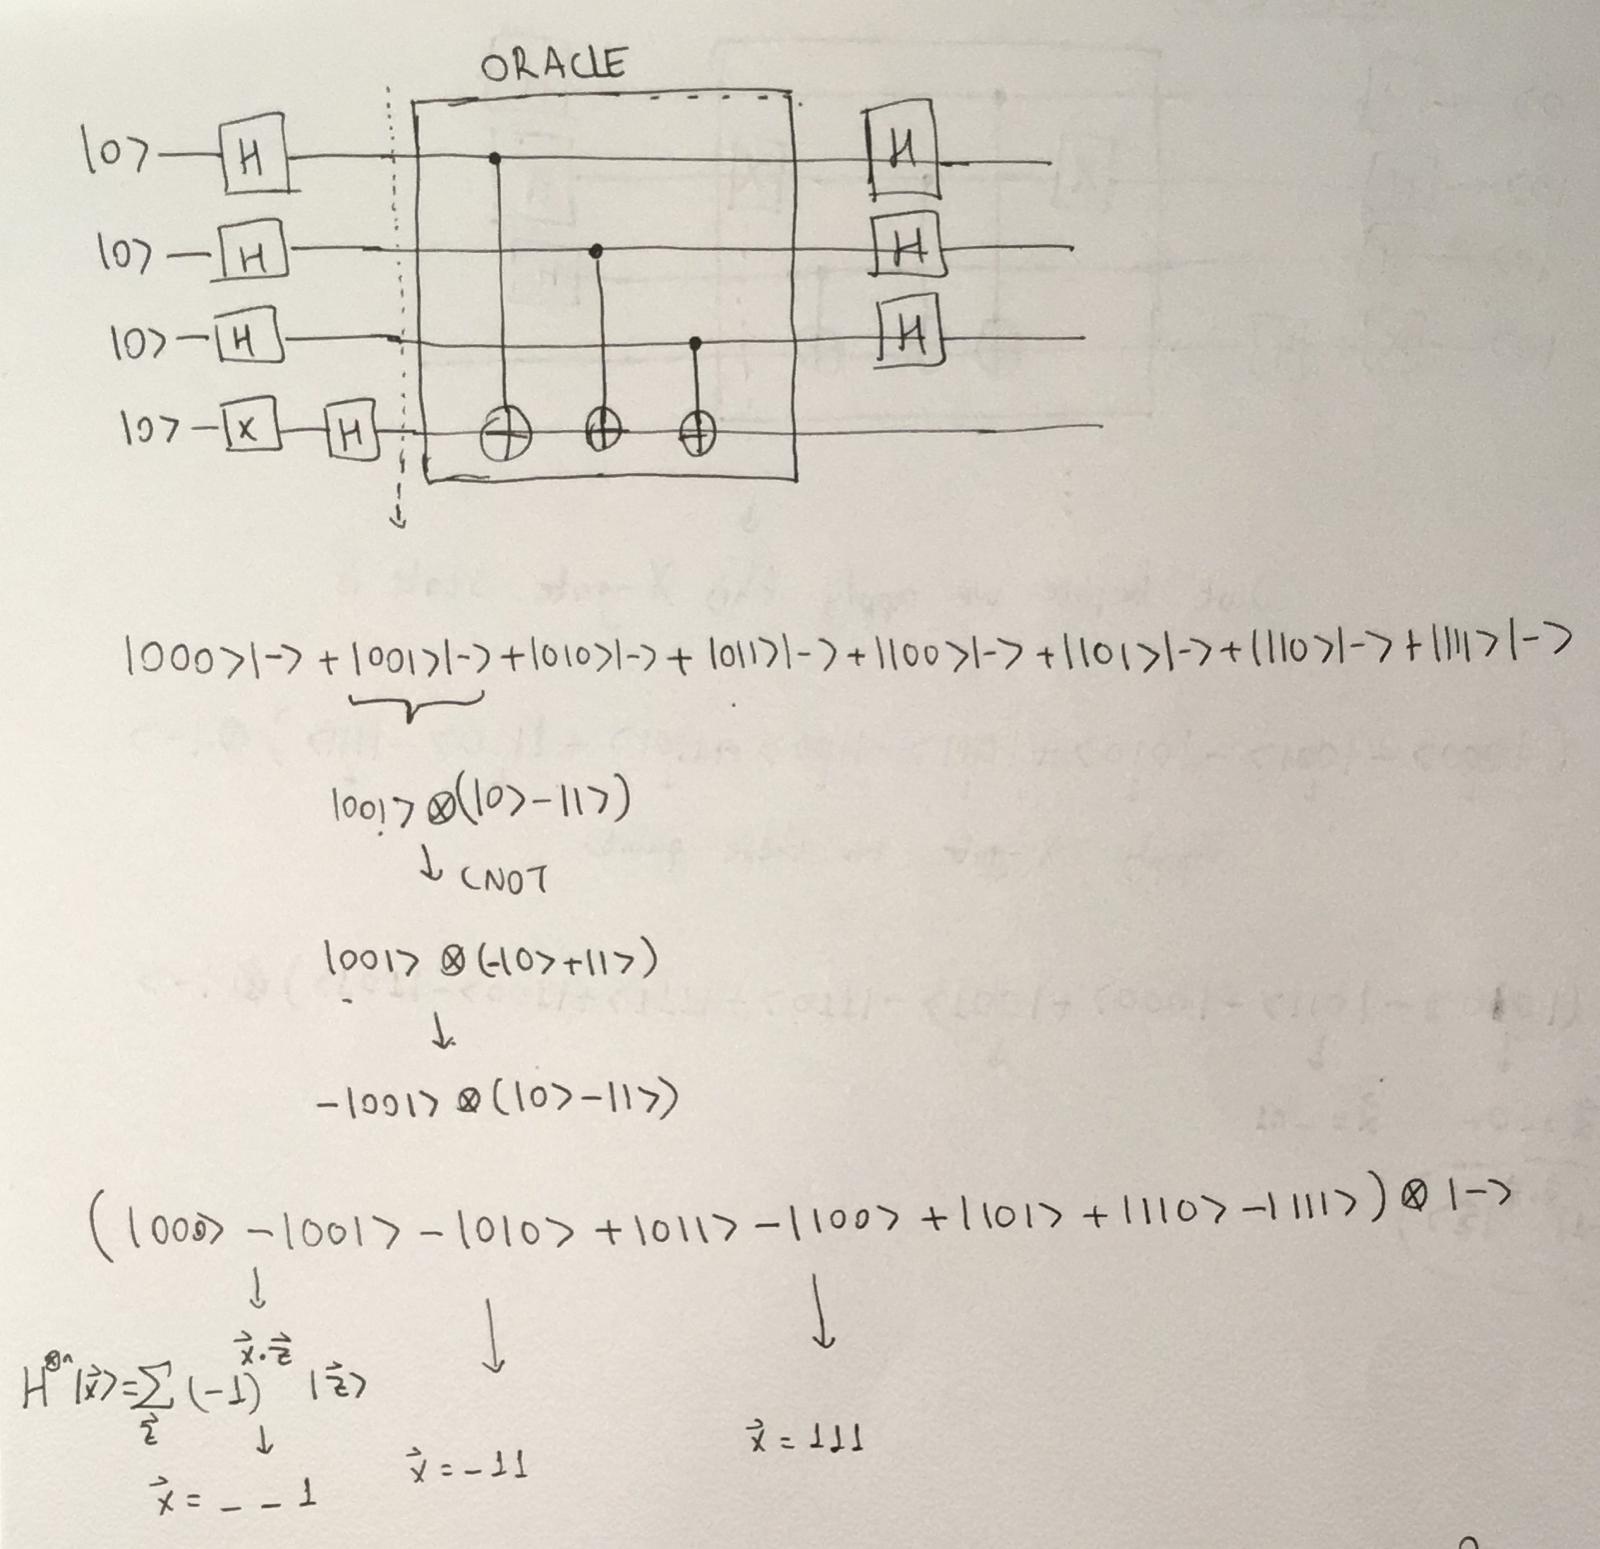 ORACLE
|0> H H
|0> H H
|0> H H
|0> X H
|000>|-> + |001>|-> + |010>|-> + |011>|-> + |100>|-> + |101>|-> + |110>|-> + |111>|->
|001> ⊗ (|0> - |1>)
↓ CNOT
|001> ⊗ (-|0> + |1>)
↓
-|001> ⊗ (|0> - |1>)
(|000> - |001> - |010> + |011> - |100> + |101> + |110> - |111>) ⊗ |->
H^⊗n |x⃗> = Σ_z⃗ (-1)^x⃗·z⃗ |z⃗>
x⃗ = _ _ 1
x⃗ = _ 1 1
x⃗ = 111